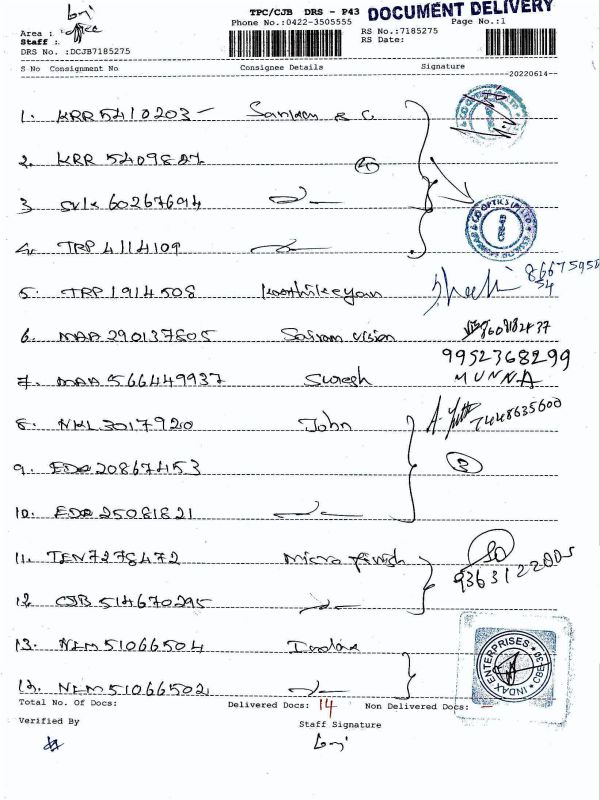 TPC/CJB DRS - P43 DOCUMENT DELIVERY
Phone No.:0422-3505555 Page No.:1
Area : office RS No.:7185275
Staff : RS Date:
DRS No. :DCJB7185275
S No Consignment No Consignee Details Signature
--20220614--
1. KRR 5410203 - & C.
2. KRR 5409827 4
3 60267694
4. TRP 4114109
5. TRP 1914508 Karthikeyan
6. MAA 290137805 Sairam vision
9952368299
7. MAA 566449937 Suresh MUNNA
8. NKL 3017920 John 7448635600
9. EDO 208674153 3
10. EDO 25081821
11. TEN 7278472 Micro finish
12. CJB 514670295
13. NLM 51066504 Indax
INDAX ENTERPRISES CBE
13. NLM 51066502
Total No. Of Docs: Delivered Docs: 14 Non Delivered Docs: -
Verified By Staff Signature